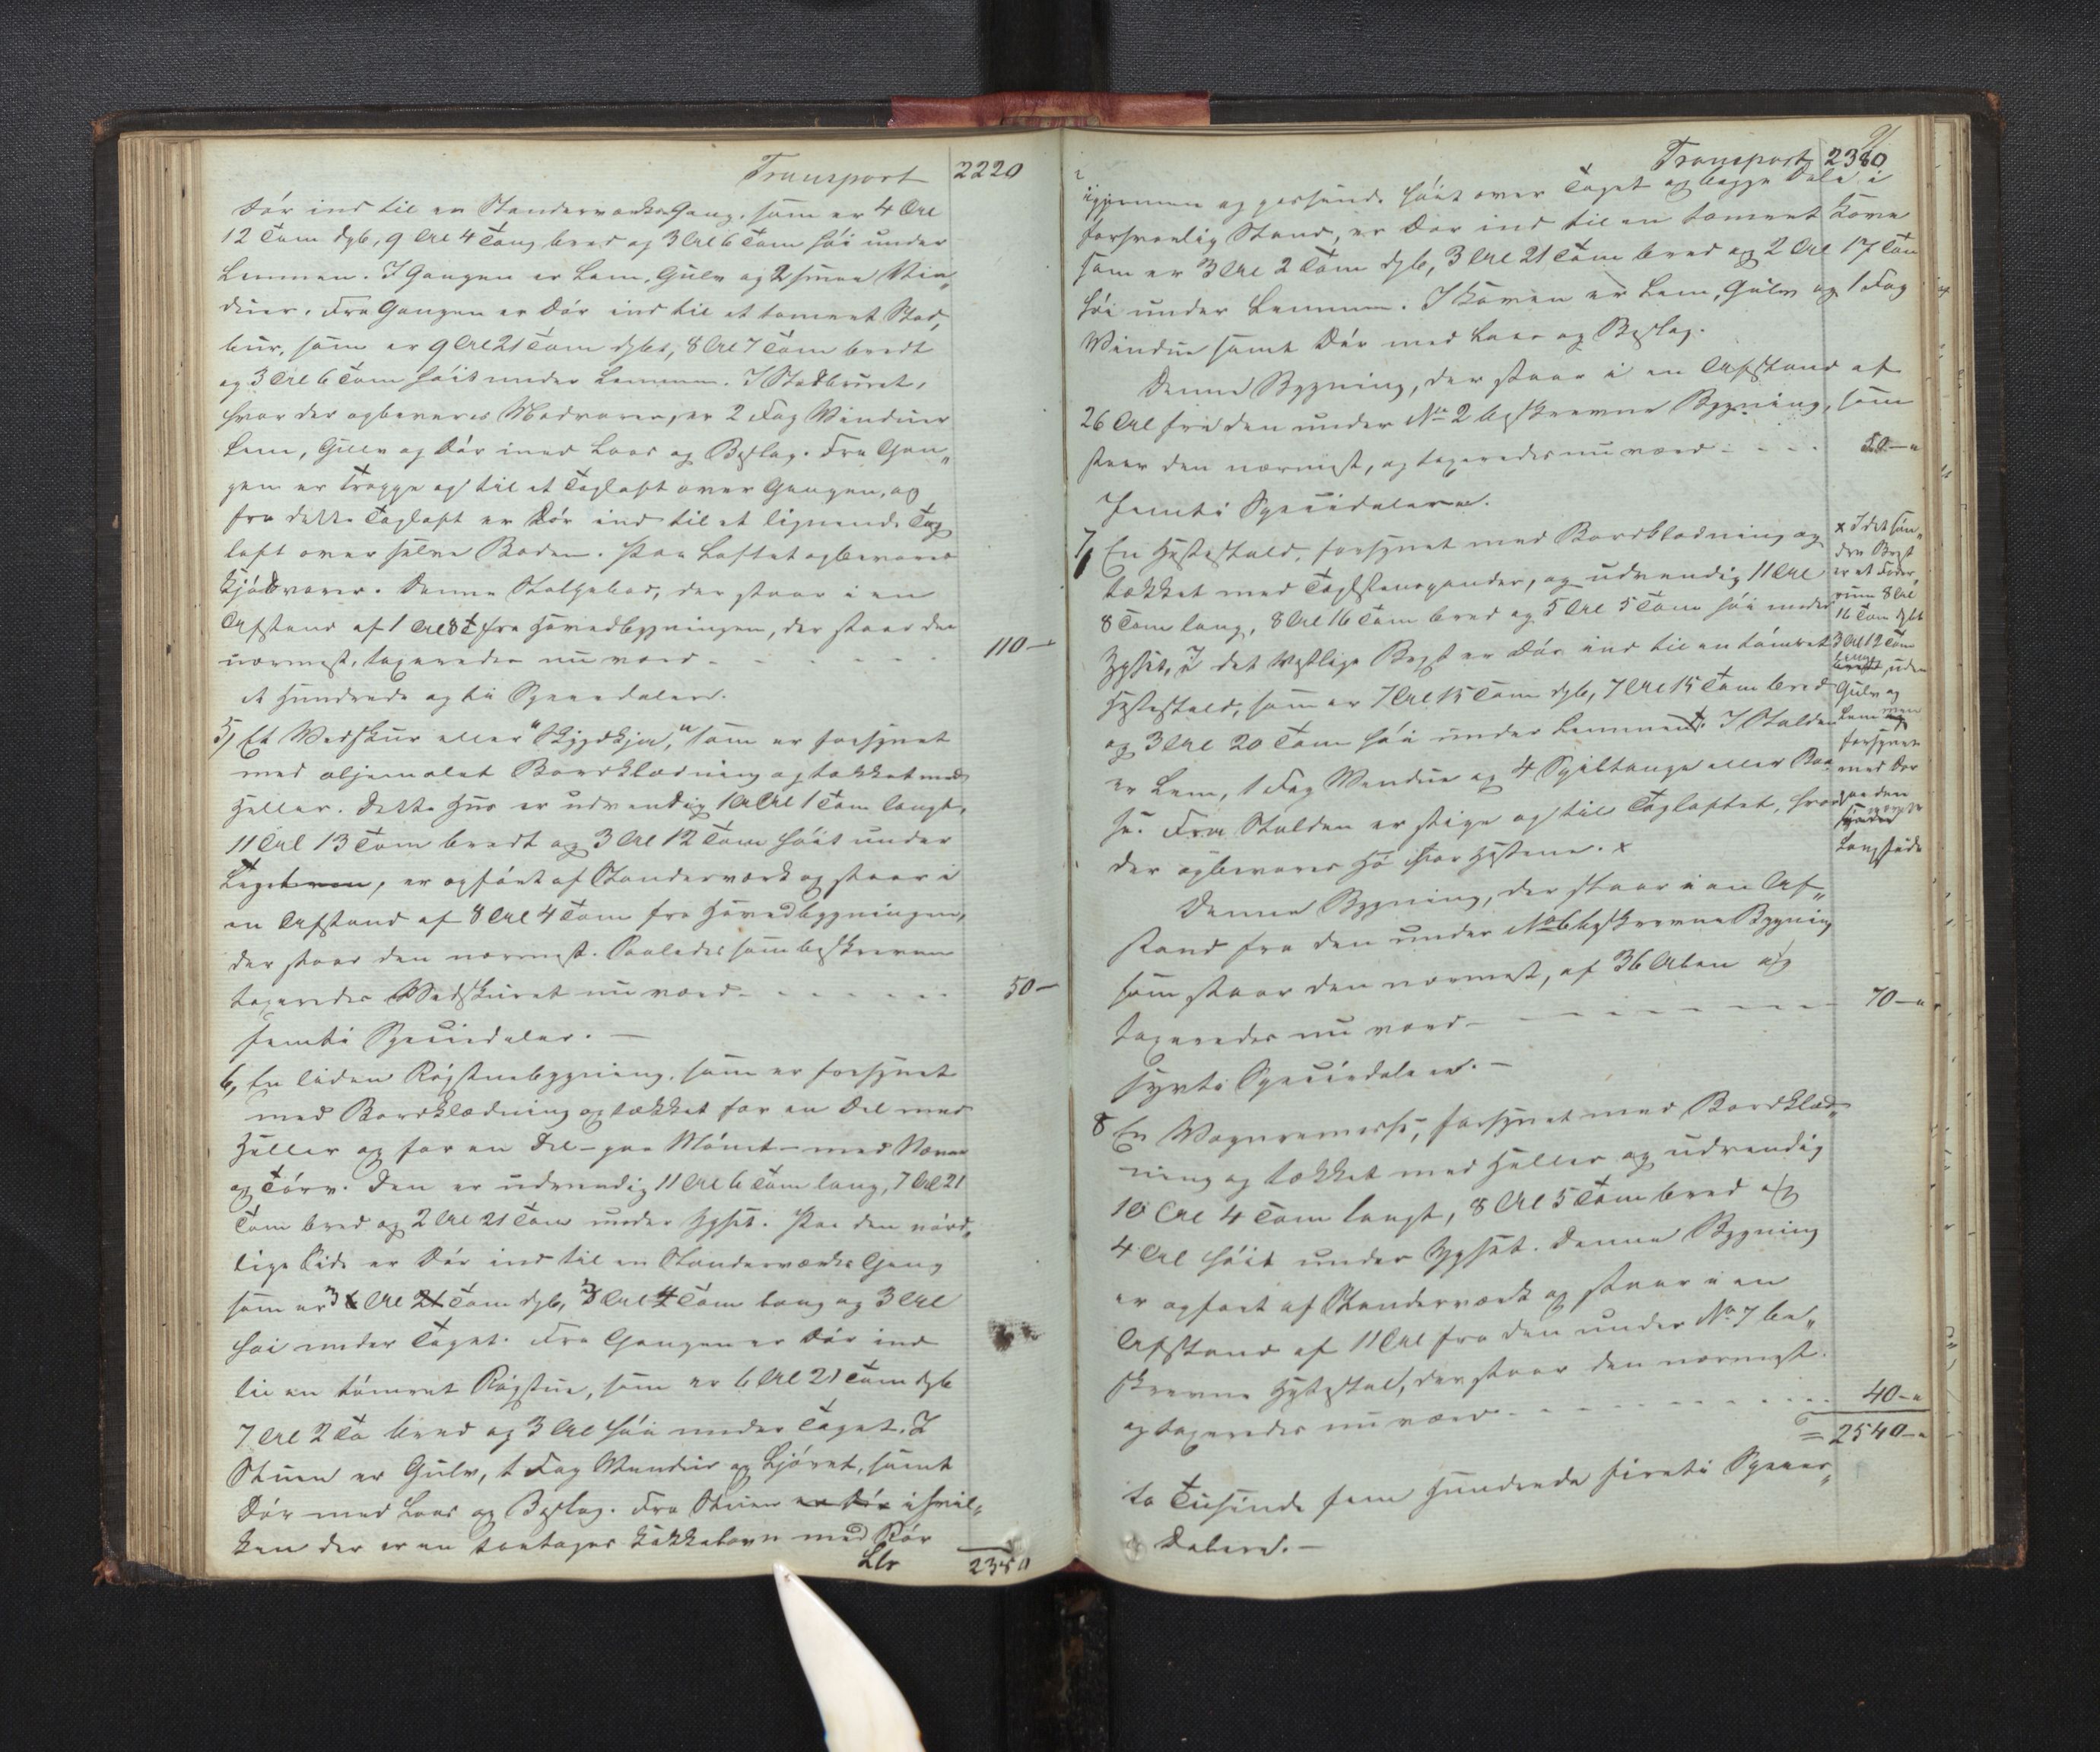 Transport 2220
Dör ind til en Standerværks Gang, som er 4 Al
12 Tom dyb, 9 Al 4 Tom bred og 3 Al 6 Tom høi under
Lemmen. I Gangen er Lem, Gulv og 2 smaa Vin„
duer. Fra Gangen er Dör ind til et tømret Stab„
bur, som er 9 Al 21 Tom dybt, 8 Al 7 Tom bredt
og 3 Al 6 Tom höit under Lemmen. I Stabburet,
hvor der opbevares Madvarer, er 2 Fag Vinduer
Lem, Gulv og Dör med Laas og Beslag. Fra Gan„
gen er Trappe op til et Tagloft over Gangen, og
fra dette Tagloft er Dör ind til et lignende Tag
loft over selve Boden. Paa Loftet opbevares
Kjödvarer. Denne Stolpebod, der staar i en
Afstand af 1 Al 8 T fra Hovedbygningen, der staar den
nærmest, taxeredes nu værd - - - - - - 110 –
et Hundrede og ti Speciedaler.
5, Et Vedskur eller "Skygdkja", som er forsynet
med oljemalet Bordklædning og tækket med
Heller. Dette Hus er udvendig 10 Al 1 Tom langt,
11 Al 13 Tom bredt og 3 Al 12 Tom höit under
, er opfört af Standerværk og staar i
en Afstand af 8 Al 4 Tom fra Hovedbygningen,
der staar den nærmest. Saaledes som beskreven
taxeredes Vedskuret nu værd - - - - - - 50 –
femti Speciedaler. –
6, En liden Røgstuebygning, som er forsynet
med Bordklædning og tækket for en Del med
Heller og for en Del – paa Mönet – med Næver
og Törv. Den er udvendig 11 Al 6 Tom lang, 7 Al 21
Tom bred og 2 Al 21 Tom under Gesims. Paa den nörd„
lige Side er Dör ind til en Standerværks Gang
som er 3 Al Tom dyb, 3 Al 4 Tom lang og 3 Al
høi under Taget. Fra Gangen er Dör ind
til en tömret Røgstue, som er 6 Al 21 Tom dyb
7 Al 2 To bred og 3 Al höi under Taget. I
Stuen er Gulv, 1 Fag Vindue og Ljöret, samt
Dör med Laas og Beslag. Fra Stuen er Dör i hvil„
ken der er en Kakkelovn med Rör
2380
91
Transport 2380
igjennem og passende höit over Taget og begge Dele i
forsvarlig Stand, er Dør ind til en tømret Kove
som er 3 Al 2 Tom dyb, 3 Al 21 Tom bred og 2 Al 17 Tom
höi under Lemmen. I Koven er Lem, Gulv og 1 Fag
Vindue samt Dör med Laas og Beslag.
Denne Bygning, der staar i en Afstand af
26 Al fra den under No 2 beskrevne Bygning, som
staar den nærmest, og taxeredes nu værd - - - 50 – "
Femti Speciedaler.
7, En Hestestald, forsynet med Bordklædning og
tækket med Taglstenspander, og udvendig 11 Al
8 Tom lang, 8 Al 16 Tom bred og 5 Al 5 Tom höi under
Gesims, I det Vestlige Bygt er Dör ind til en tömret
Hestestald, som er 7 Al 15 Tom dyb, 7 Al 15 Tom bred
og 3 Al 20 Tom höi under Lemmen. I Stalden
er Lem, 1 Fag Vindue og 4 Spiltauge eller Baa
se. Fra Stalden er Stige op til Tagloftet, hvor
der opbevares Hø for Hestene. x
x I det søn„
dre Bygt
er et Foder„
rum 8 Al
16 Tom dybt
3 Al 12 Tom
langt, uden
Gulv og
Lem men
forsynet
med Dør
paa den
Langside
Denne Bygning, der staar i en Af„
stand fra den under No 6 beskrevne Bygning
som staar den nærmest, af 36 Alen og
taxeredes nu værd - - - - - - - - 70 – "
syvti Speciedaler. –
8 En Vognremisse, forsynet med Bordklæd„
ning og tækket med Heller og udvendig
10 Al 4 Tom langt, 8 Al 5 Tom bred og
4 Al höit under Gesims. Denne Bygning
er opført af Standerværk og staar i en
Afstand af 11 Al fra den under No 7 be„
skrevne Hestestald, der staar den nærmest
og taxeredes nu værd - - - - - - - - 40 – "
= 2540 – "
to Tusinde fem Hundrede firti Specie„
daler. –